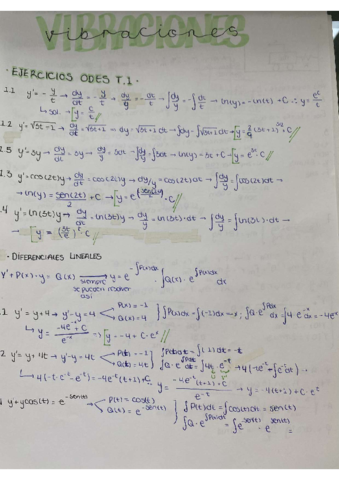 VIBRACIONES
vibraciones
· EJERCICIOS ODES T.1 ·
1.1 y' = -y/t → dy/dt = -y/t → dy/y = -dt/t → ∫dy/y = -∫dt/t → ln(y) = -ln(t) + C ∴ y =
↳ sol. → [y = C/t
1.2 y' = √(5t-1) → dy/dt = √(5t-1) → dy = √(5t-1) dt → ∫dy = ∫√(5t-1) dt →
y' = 5y → dy/dt = 5y → dy/y = 5dt → ∫dy/y = ∫5dt → ln(y) = 5t + C → [y = e^(5t)·C //
y' = cos(2t)y → dy/dt = cos(2t)y → dy/y = cos(2t)dt → ∫dy/y = ∫cos(2t)dt →
→ ln(y) = sen(2t)/2 + C → [y = e^(sen(2t)/2)·C //
y' = ln(5t)y → dy/dt = ln(5t)y → dy/y = ln(5t)·dt → ∫dy/y = ∫ln(5t)·dt →
→ [y = (5t/e)^t·C //
· DIFERENCIALES LINEALES
y' + P(t)·y = Q(x) → siempre se pueden resolver así → y = e^(-∫P(t)dt) · ∫Q(t)·e^(∫P(t)dt) dt
y' = y+4 → y'-y = 4 < P(t) = -1 Q(t) = 4 } ∫P(t)dt = ∫(-1)dt = -t ∫Q·e^(∫Pdt) dt ∫4·e^(-t) = -4e^(-t)
↳ y = (-4e^(-t) + C)/e^(-t) → [y = -4 + C·e^t //
2 y' = y+4t → y'-y = 4t < P(t) = -1 Q(t) = 4t
y = (-4e^(-t)(t+1)+C)/e^(-t) → y = -4(t+1) + C·e^t
y'+ycos(t) = e^(-sen(t)) < P(t) = cos(t) Q(t) = e^(-sen(t)) } ∫P(t)dt = ∫cos(t)dt = sen(t)
∫Q·e^(∫P(t)dt) = ∫e^(-sen(t)) · e^(sen(t)) =